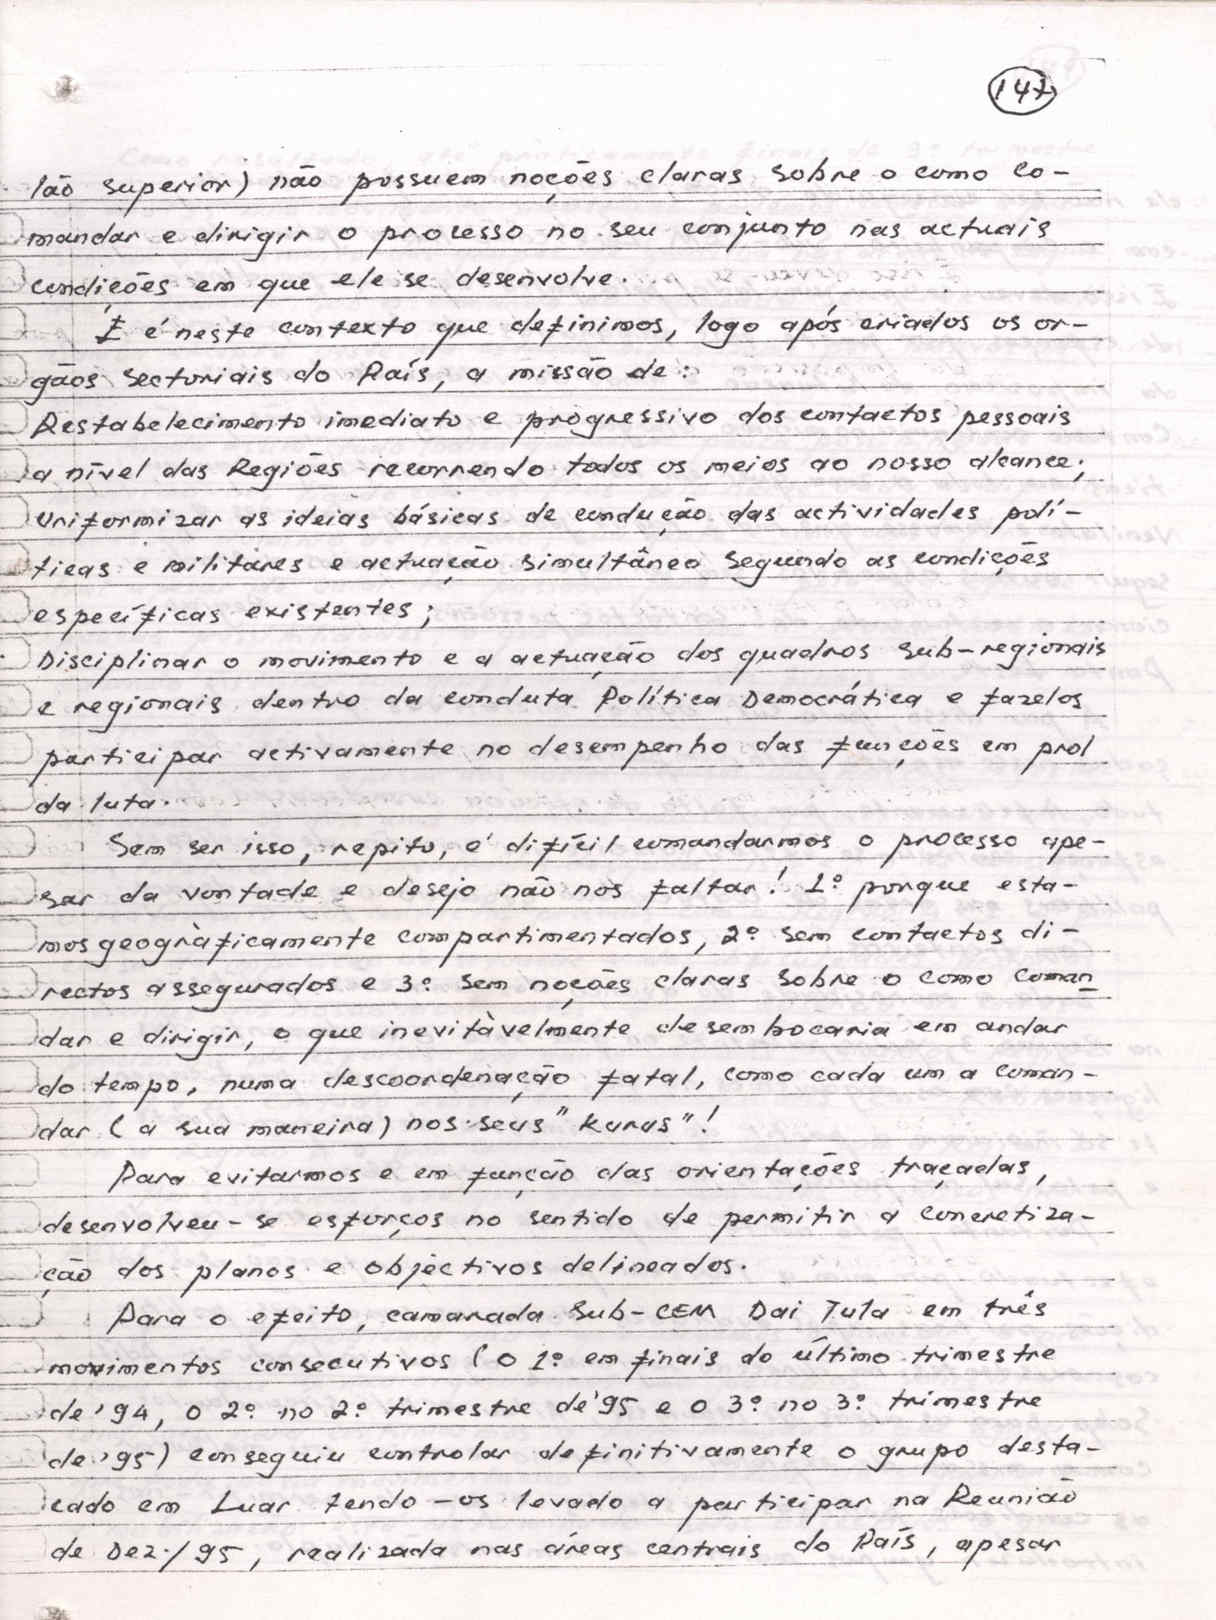 147
lão superior) não possuem noções claras sobre o como co-
mandar e dirigir o processo no seu conjunto nas actuais
condições em que ele se desenvolve.
E é neste contexto que definimos, logo após criados os or-
gãos sectoriais do País, a missão de:
Restabelecimento imediato e progressivo dos contactos pessoais
a nível das Regiões recorrendo todos os meios ao nosso alcance;
Uniformizar as ideias básicas de condução das actividades polí-
ticas e militares e actuação simultâneo segundo as condições
específicas existentes;
Disciplinar o movimento e a actuação dos quadros sub-regionais
e regionais dentro da conduta Política Democrática e fazelos
participar activamente no desempenho das funções em prol
da luta.
Sem ser isso, repito, é difícil comandarmos o processo ape-
sar da vontade e desejo não nos faltar! 1º porque esta-
mos geogràficamente compartimentados, 2º sem contactos di-
rectos assegurados e 3º sem noções claras sobre o como coman
dar e dirigir, o que inevitàvelmente desembocaria em andar
do tempo, numa descoordenação fatal, como cada um a coman-
dar (a sua maneira) nos seus "kuras"!
Para evitarmos e em função das orientações traçadas,
desenvolveu-se esforços no sentido de permitir a concretiza-
ção dos planos e objectivos delineados.
Para o efeito, camarada Sub-CEM Dai Tula em três
movimentos consecutivos (o 1º em finais do último trimestre
de '94, o 2º no 2º trimestre de '95 e o 3º no 3º trimestre
de '95) conseguiu controlar definitivamente o grupo desta-
cado em Luar tendo-os levado a participar na Reunião
de Dez./95, realizada nas áreas centrais do País, apesar